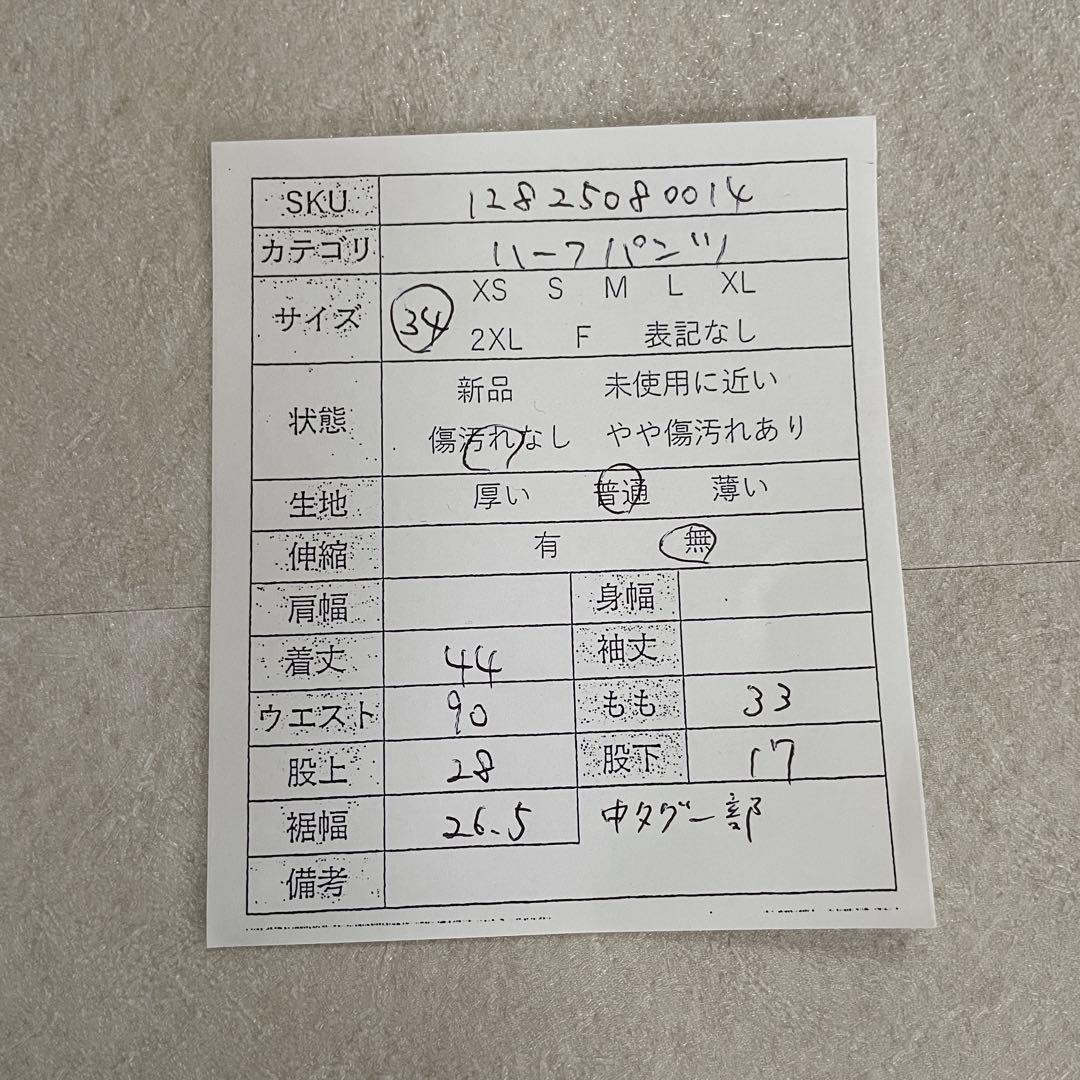 SKU 12825080014
カテゴリ ハーフパンツ
サイズ 34 XS S M L XL
2XL F 表記なし
状態 新品 未使用に近い
傷汚れなし やや傷汚れあり
生地 厚い 普通 薄い
伸縮 有 無
肩幅 身幅
着丈 44 袖丈
ウエスト 90 もも 33
股上 28 股下 17
裾幅 26.5 中タグ一部
備考